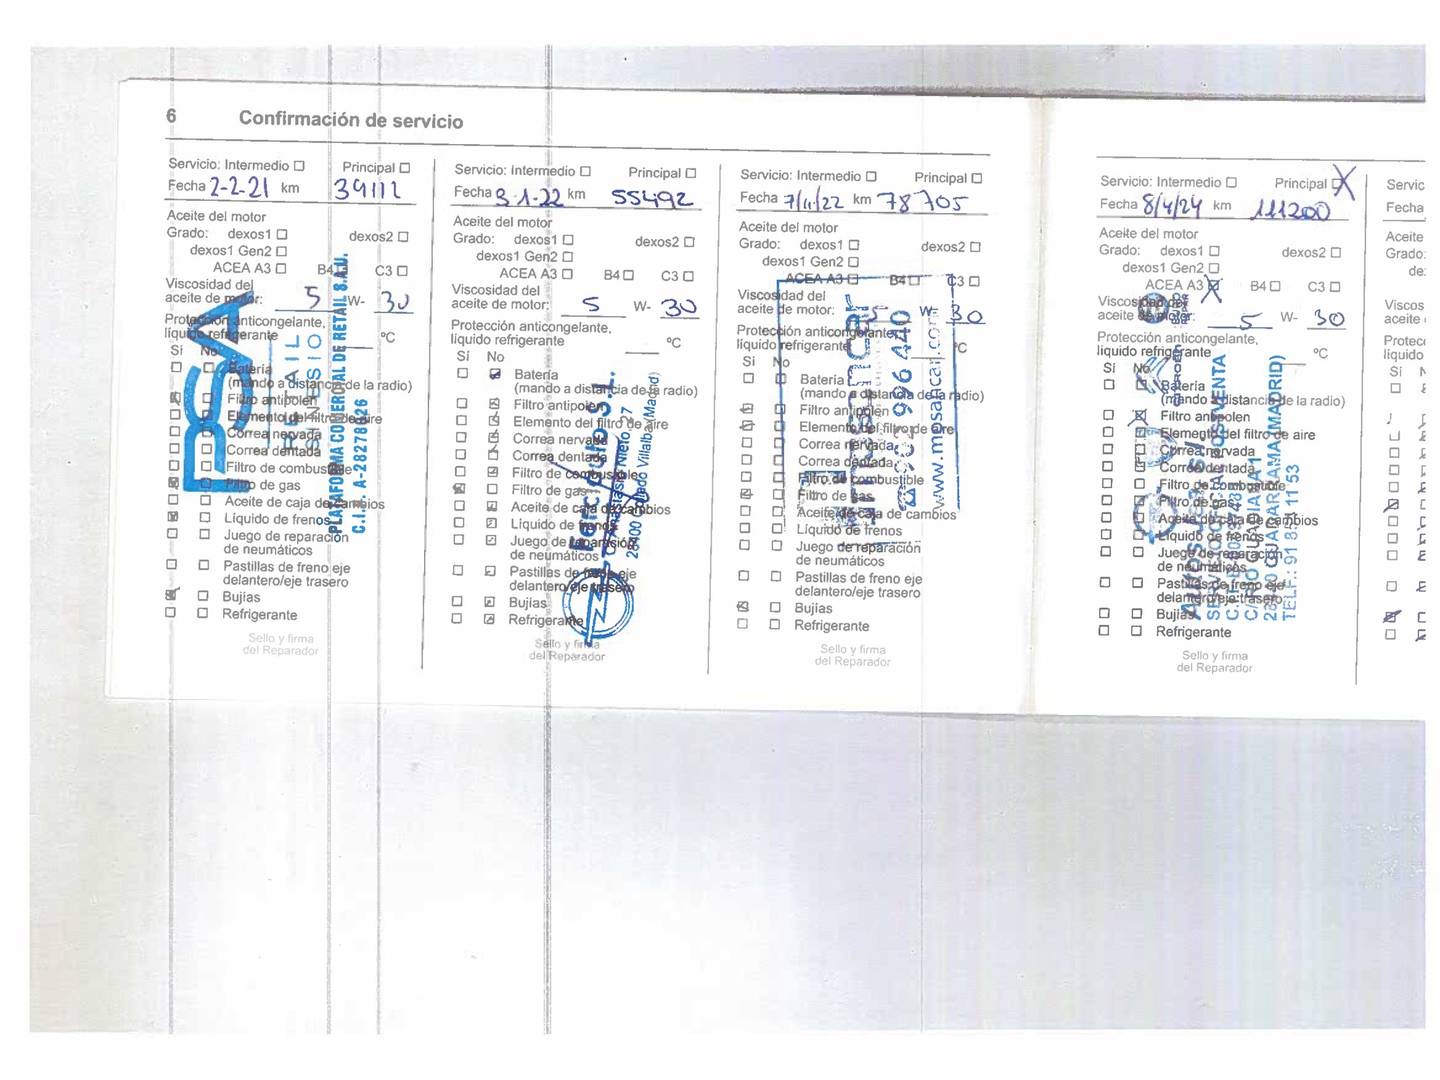 6 Confirmación de servicio
Servicio: Intermedio ☐ Principal ☐
Fecha 2-2-21 km 39112
Aceite del motor
Grado: dexos1 ☐ dexos2 ☐
dexos1 Gen2 ☐
ACEA A3 ☐ B4 ☐ C3 ☐
Viscosidad del
aceite de motor: 5 W- 30
Protección anticongelante,
líquido refrigerante °C
Sí No
Batería
(mando a distancia de la radio)
Filtro antipolen
Elemento del filtro de aire
Correa nervada
Correa dentada
Filtro de combustible
Filtro de gas
Aceite de caja de cambios
Líquido de frenos
Juego de reparación
de neumáticos
Pastillas de freno eje
delantero/eje trasero
Bujías
Refrigerante
Sello y firma
del Reparador
RETAIL
SINESIO
PLATAFORMA COMERCIAL DE RETAIL S.A.U.
C.I.F. A-28278026
Servicio: Intermedio ☐ Principal ☐
Fecha 3-1-22 km 55492
Aceite del motor
Grado: dexos1 ☐ dexos2 ☐
dexos1 Gen2 ☐
ACEA A3 ☐ B4 ☐ C3 ☐
Viscosidad del
aceite de motor: 5 W- 30
Protección anticongelante,
líquido refrigerante °C
Sí No
Batería
(mando a distancia de la radio)
Filtro antipolen
Elemento del filtro de aire
Correa nervada
Correa dentada
Filtro de combustible
Filtro de gas
Aceite de caja de cambios
Líquido de frenos
Juego de reparación
de neumáticos
Pastillas de freno eje
delantero/eje trasero
Bujías
Refrigerante
Sello y firma
del Reparador
S.L.
Nieto
Villalba (Madrid)
Servicio: Intermedio ☐ Principal ☐
Fecha 7/11/22 km 78705
Aceite del motor
Grado: dexos1 ☐ dexos2 ☐
dexos1 Gen2 ☐
ACEA A3 ☐ B4 ☐ C3 ☐
Viscosidad del
aceite de motor: 5 W- 30
Protección anticongelante,
líquido refrigerante °C
Sí No
Batería
(mando a distancia de la radio)
Filtro antipolen
Elemento del filtro de aire
Correa nervada
Correa dentada
Filtro de combustible
Filtro de gas
Aceite de caja de cambios
Líquido de frenos
Juego de reparación
de neumáticos
Pastillas de freno eje
delantero/eje trasero
Bujías
Refrigerante
Sello y firma
del Reparador
902 996 440
www.mosancar.com
Servicio: Intermedio ☐ Principal ☒
Fecha 8/4/24 km 111200
Aceite del motor
Grado: dexos1 ☐ dexos2 ☐
dexos1 Gen2 ☐
ACEA A3 ☒ B4 ☐ C3 ☐
Viscosidad del
aceite de motor: 5 W- 30
Protección anticongelante,
líquido refrigerante °C
Sí No
Batería
(mando a distancia de la radio)
Filtro antipolen
Elemento del filtro de aire
Correa nervada
Correa dentada
Filtro de combustible
Filtro de gas
Aceite de caja de cambios
Líquido de frenos
Juego de reparación
de neumáticos
Pastillas de freno eje
delantero/eje trasero
Bujías
Refrigerante
Sello y firma
del Reparador
SERVICIO OFICIAL POSTVENTA
C/ RIO GUADIANA 1
GUADARRAMA (MADRID)
TELF.: 91 854 11 53
Servic
Fecha
Aceite
Grado:
de:
Viscos
aceite
Protecc
líquido
Sí